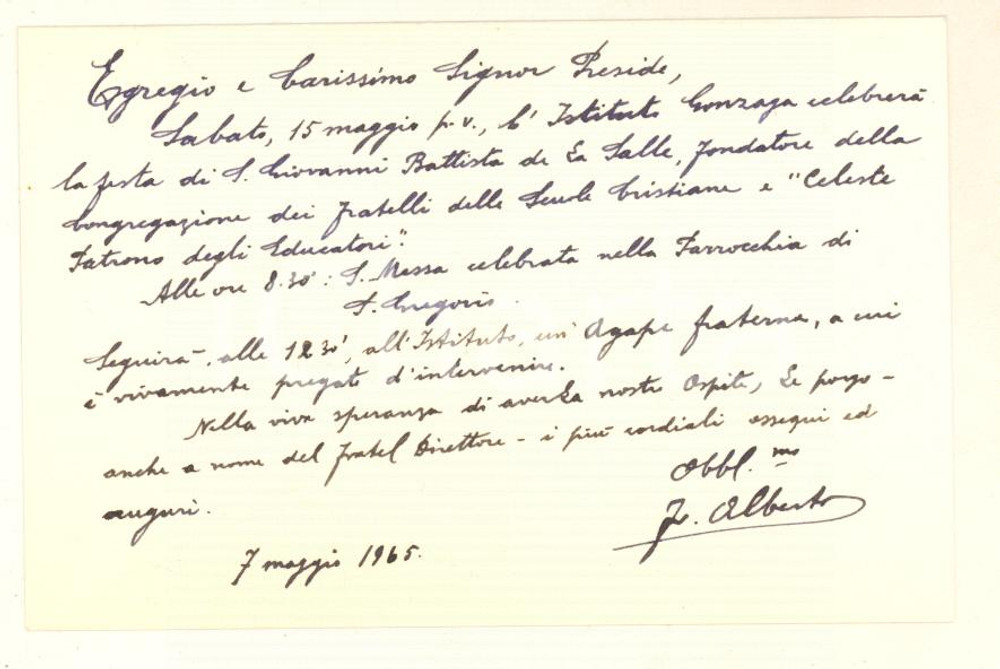 Egregio e Carissimo Signor Preside,
Sabato, 15 maggio p.v., l'Istituto Gonzaga celebrerà
la festa di S. Giovanni Battista de La Salle, fondatore della
Congregazione dei Fratelli delle Scuole Cristiane e "Celeste
Patrono degli Educatori".
Alle ore 8.30': S. Messa celebrata nella Parrocchia di
S. Gregorio.
Seguirà, alle 12.30', all'Istituto, un'Agape fraterna, a cui
è vivamente pregato d'intervenire.
Nella viva speranza di averLa nostro Ospite, Le porgo -
anche a nome del Fratel Direttore - i più cordiali ossequi ed
auguri.
Obbl.mo
F. Alberto
7 maggio 1965.